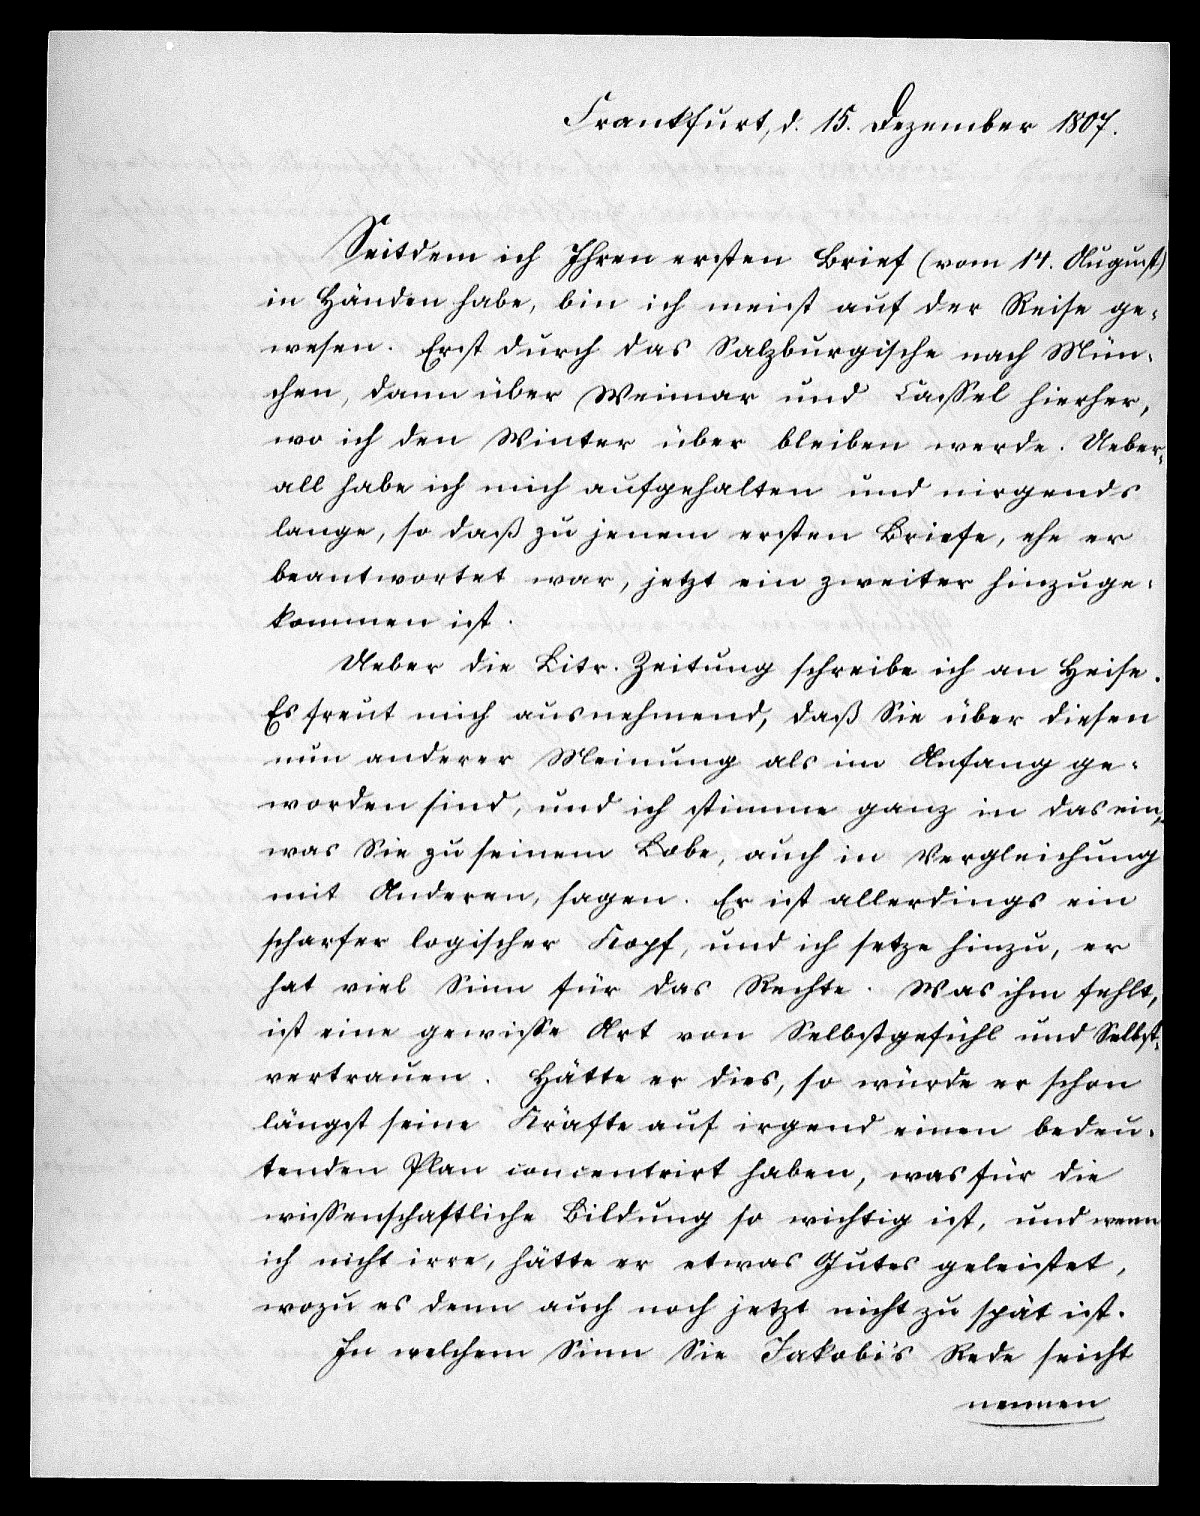 Frankfurt, d. 15. Dezember 1807.
Seitdem ich Ihren ersten Brief (vom 14. August)
in Händen habe, bin ich meist auf der Reise ge-
wesen. Erst durch das Salzburgische nach Mün-
chen, dann über Weimar und Cassel hierher,
wo ich den Winter über bleiben werde. Ueber-
all habe ich mich aufgehalten und nirgends
lange, so daß zu jenem ersten Briefe, ehe er
beantwortet war, jetzt ein zweiter hinzuge-
kommen ist.
Ueber die Litr. Zeitung schreibe ich an Heise.
Es freut mich ausnehmend, daß Sie über diesen
nun anderer Meinung als im Anfang ge-
worden sind, und ich stimme ganz in das ein,
was Sie zu seinem Lobe, auch in Vergleichung
mit Anderen, sagen. Er ist allerdings ein
scharfer logischer Kopf, und ich setze hinzu, er
hat viel Sinn für das Rechte. Was ihm fehlt,
ist eine gewisse Art von Selbstgefühl und Selbst-
vertrauen. Hätte er dies, so würde er schon
längst seine Kräfte auf irgend einen bedeu-
tenden Plan concentrirt haben, was für die
wissenschaftliche Bildung so wichtig ist, und wenn
ich nicht irre, hätte er etwas Gutes geleistet,
wozu es denn auch noch jetzt nicht zu spät ist.
In welchem Sinn Sie Jakobi's Rede seicht
nennen